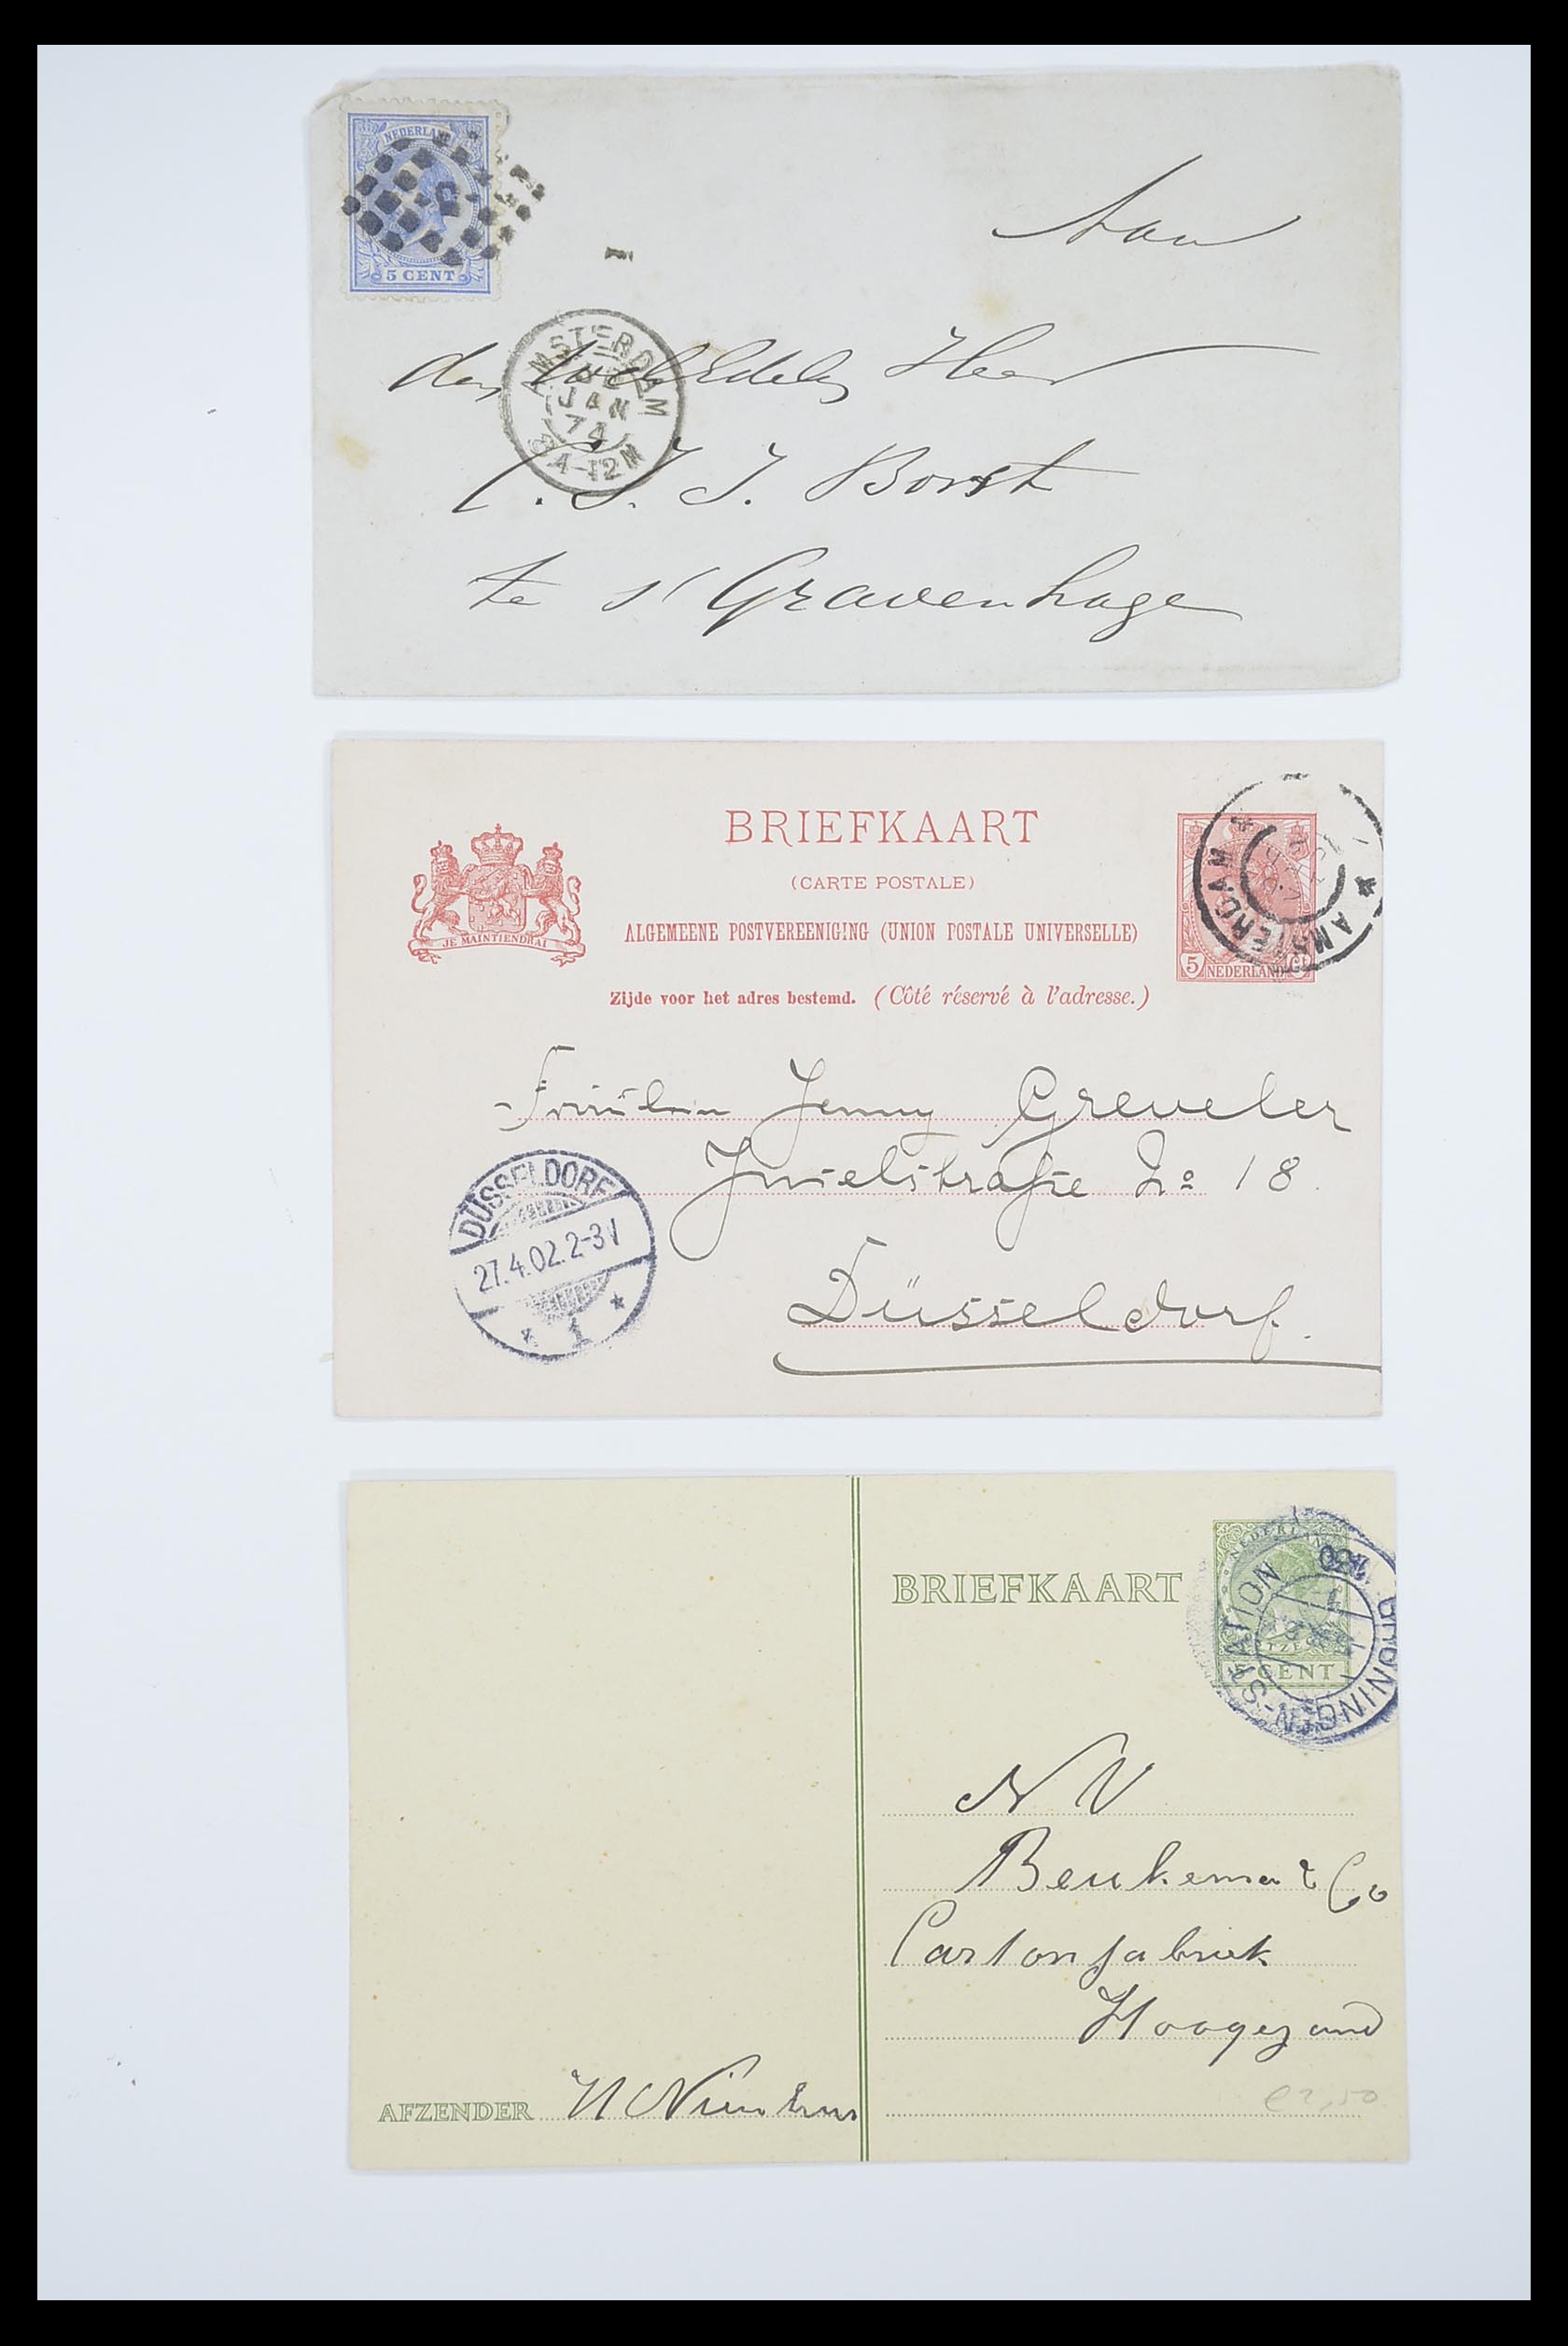 NEDERLAND
5 CENT
Aan
den WelEdelen Heer
AMSTERDAM
JAN
74
8A-12M
C. J. J. Borst
te s' Gravenhage
BRIEFKAART
(CARTE POSTALE)
ALGEMEENE POSTVEREENIGING (UNION POSTALE UNIVERSELLE)
JE MAINTIENDRAI
AMSTERDAM
5 NEDERLAND Ct
Zijde voor het adres bestemd. (Côté réservé à l'adresse.)
Fräulein Jenny Greveler
Inselstraße No 18.
DÜSSELDORF
27.4.02.2-3V
* 1 *
Düsseldorf.
NEDERLAND
BRIEFKAART
5 CENT
GRONINGEN-STATION
NV
Beukema & Co
Cartonfabriek
Hoogezand
AFZENDER
€2,50